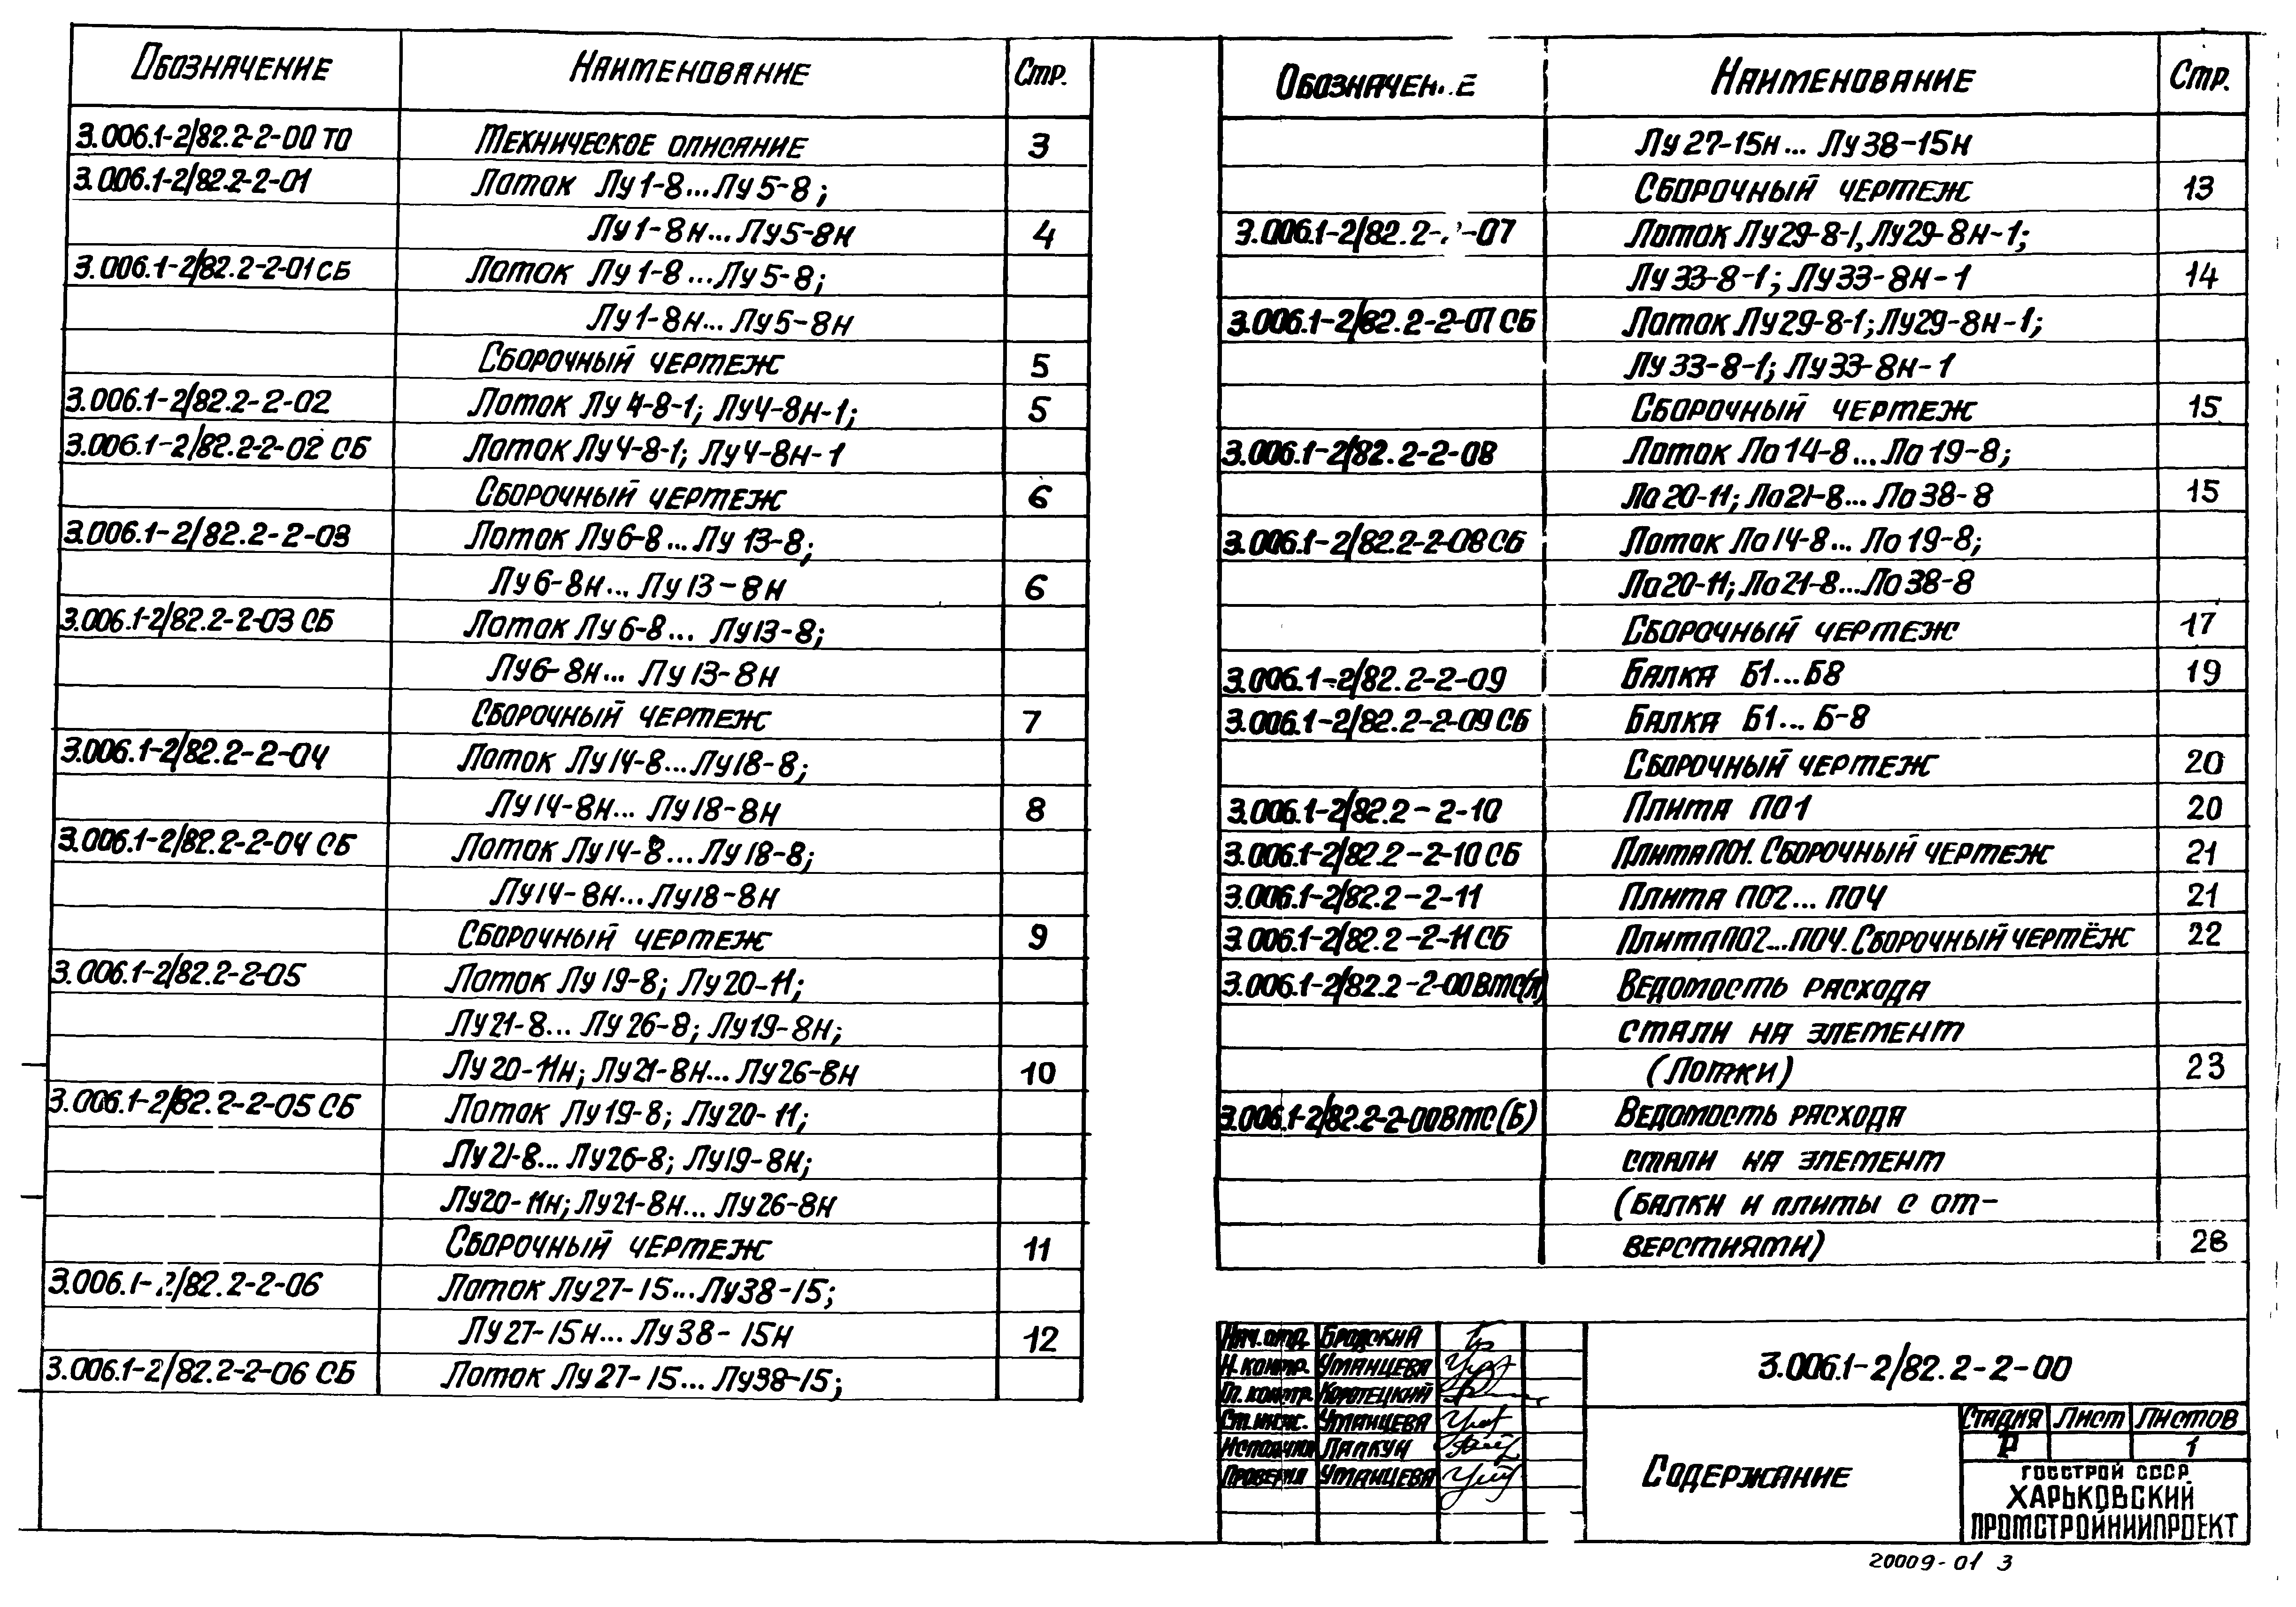 Обозначение Наименование Стр.
3.006.1-2/82.2-2-00 ТО Техническое описание 3
3.006.1-2/82.2-2-01 Лоток Лу1-8...Лу5-8;
Лу1-8н...Лу5-8н 4
3.006.1-2/82.2-2-01 СБ Лоток Лу1-8...Лу5-8;
Лу1-8н...Лу5-8н
Сборочный чертеж 5
3.006.1-2/82.2-2-02 Лоток Лу4-8-1; Лу4-8н-1; 5
3.006.1-2/82.2-2-02 СБ Лоток Лу4-8-1; Лу4-8н-1
Сборочный чертеж 6
3.006.1-2/82.2-2-03 Лоток Лу6-8...Лу13-8;
Лу6-8н...Лу13-8н 6
3.006.1-2/82.2-2-03 СБ Лоток Лу6-8...Лу13-8;
Лу6-8н...Лу13-8н
Сборочный чертеж 7
3.006.1-2/82.2-2-04 Лоток Лу14-8...Лу18-8;
Лу14-8н...Лу18-8н 8
3.006.1-2/82.2-2-04 СБ Лоток Лу14-8...Лу18-8;
Лу14-8н...Лу18-8н
Сборочный чертеж 9
3.006.1-2/82.2-2-05 Лоток Лу19-8; Лу20-11;
Лу21-8...Лу26-8; Лу19-8н;
Лу20-11н; Лу21-8н...Лу26-8н 10
3.006.1-2/82.2-2-05 СБ Лоток Лу19-8; Лу20-11;
Лу21-8...Лу26-8; Лу19-8н;
Лу20-11н; Лу21-8н...Лу26-8н
Сборочный чертеж 11
3.006.1-2/82.2-2-06 Лоток Лу27-15...Лу38-15;
Лу27-15н...Лу38-15н 12
3.006.1-2/82.2-2-06 СБ Лоток Лу27-15...Лу38-15;
Обозначение Наименование Стр.
Лу27-15н...Лу38-15н
Сборочный чертеж 13
3.006.1-2/82.2-2-07 Лоток Лу29-8-1, Лу29-8н-1;
Лу33-8-1; Лу33-8н-1 14
3.006.1-2/82.2-2-07 СБ Лоток Лу29-8-1; Лу29-8н-1;
Лу33-8-1; Лу33-8н-1
Сборочный чертеж 15
3.006.1-2/82.2-2-08 Лоток Ло14-8...Ло19-8;
Ло20-11; Ло21-8...Ло38-8 15
3.006.1-2/82.2-2-08 СБ Лоток Ло14-8...Ло19-8;
Ло20-11; Ло21-8...Ло38-8
Сборочный чертеж 17
3.006.1-2/82.2-2-09 Балка Б1...Б8 19
3.006.1-2/82.2-2-09 СБ Балка Б1...Б-8
Сборочный чертеж 20
3.006.1-2/82.2-2-10 Плита ПО1 20
3.006.1-2/82.2-2-10 СБ Плита ПО1. Сборочный чертеж 21
3.006.1-2/82.2-2-11 Плита ПО2...ПО4 21
3.006.1-2/82.2-2-11 СБ Плита ПО2...ПО4. Сборочный чертёж 22
3.006.1-2/82.2-2-00ВМС(л) Ведомость расхода
стали на элемент
(Лотки) 23
3.006.1-2/82.2-2-00ВМС(Б) Ведомость расхода
стали на элемент
(балки и плиты с от-
верстиями) 28
Нач.отд. Бродский
Н.контр. Уманцева
Гл.констр. Коротецкий
Ст.инж. Уманцева
Исполнил Лапкун
Проверил Уманцева
3.006.1-2/82.2-2-00
Содержание
Стадия Лист Листов
Р 1
ГОССТРОЙ СССР
ХАРЬКОВСКИЙ
ПРОМСТРОЙНИИПРОЕКТ
20009-01 3